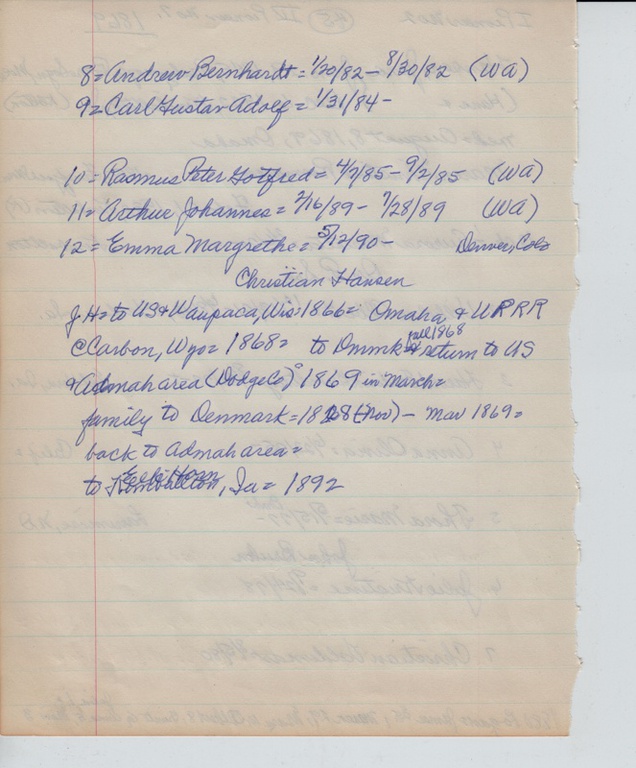 8 = Andrew Bernhardt = 1/20/82 - 8/30/82 (WA)
9 = Carl Gustav Adolf = 1/31/84 -
10 = Rasmus Peter Gotfred = 4/2/85 - 9/2/85 (WA)
11 = Arthur Johannes = 2/16/89 - 7/28/89 (WA)
12 = Emma Margrethe = 5/12/90 - Denver, Colo
Christian Hansen
J.H = to US & Waupaca, Wis: 1866 = Omaha & UPRR
@ Carbon, Wyo = 1868 = to Dnmk fall 1868 & return to US
& Admah area (Dodge Co) 1869 in March =
family to Denmark = 1868 (Nov) - Mar 1869 =
back to Admah area =
to Elk Horn, Ia = 1892